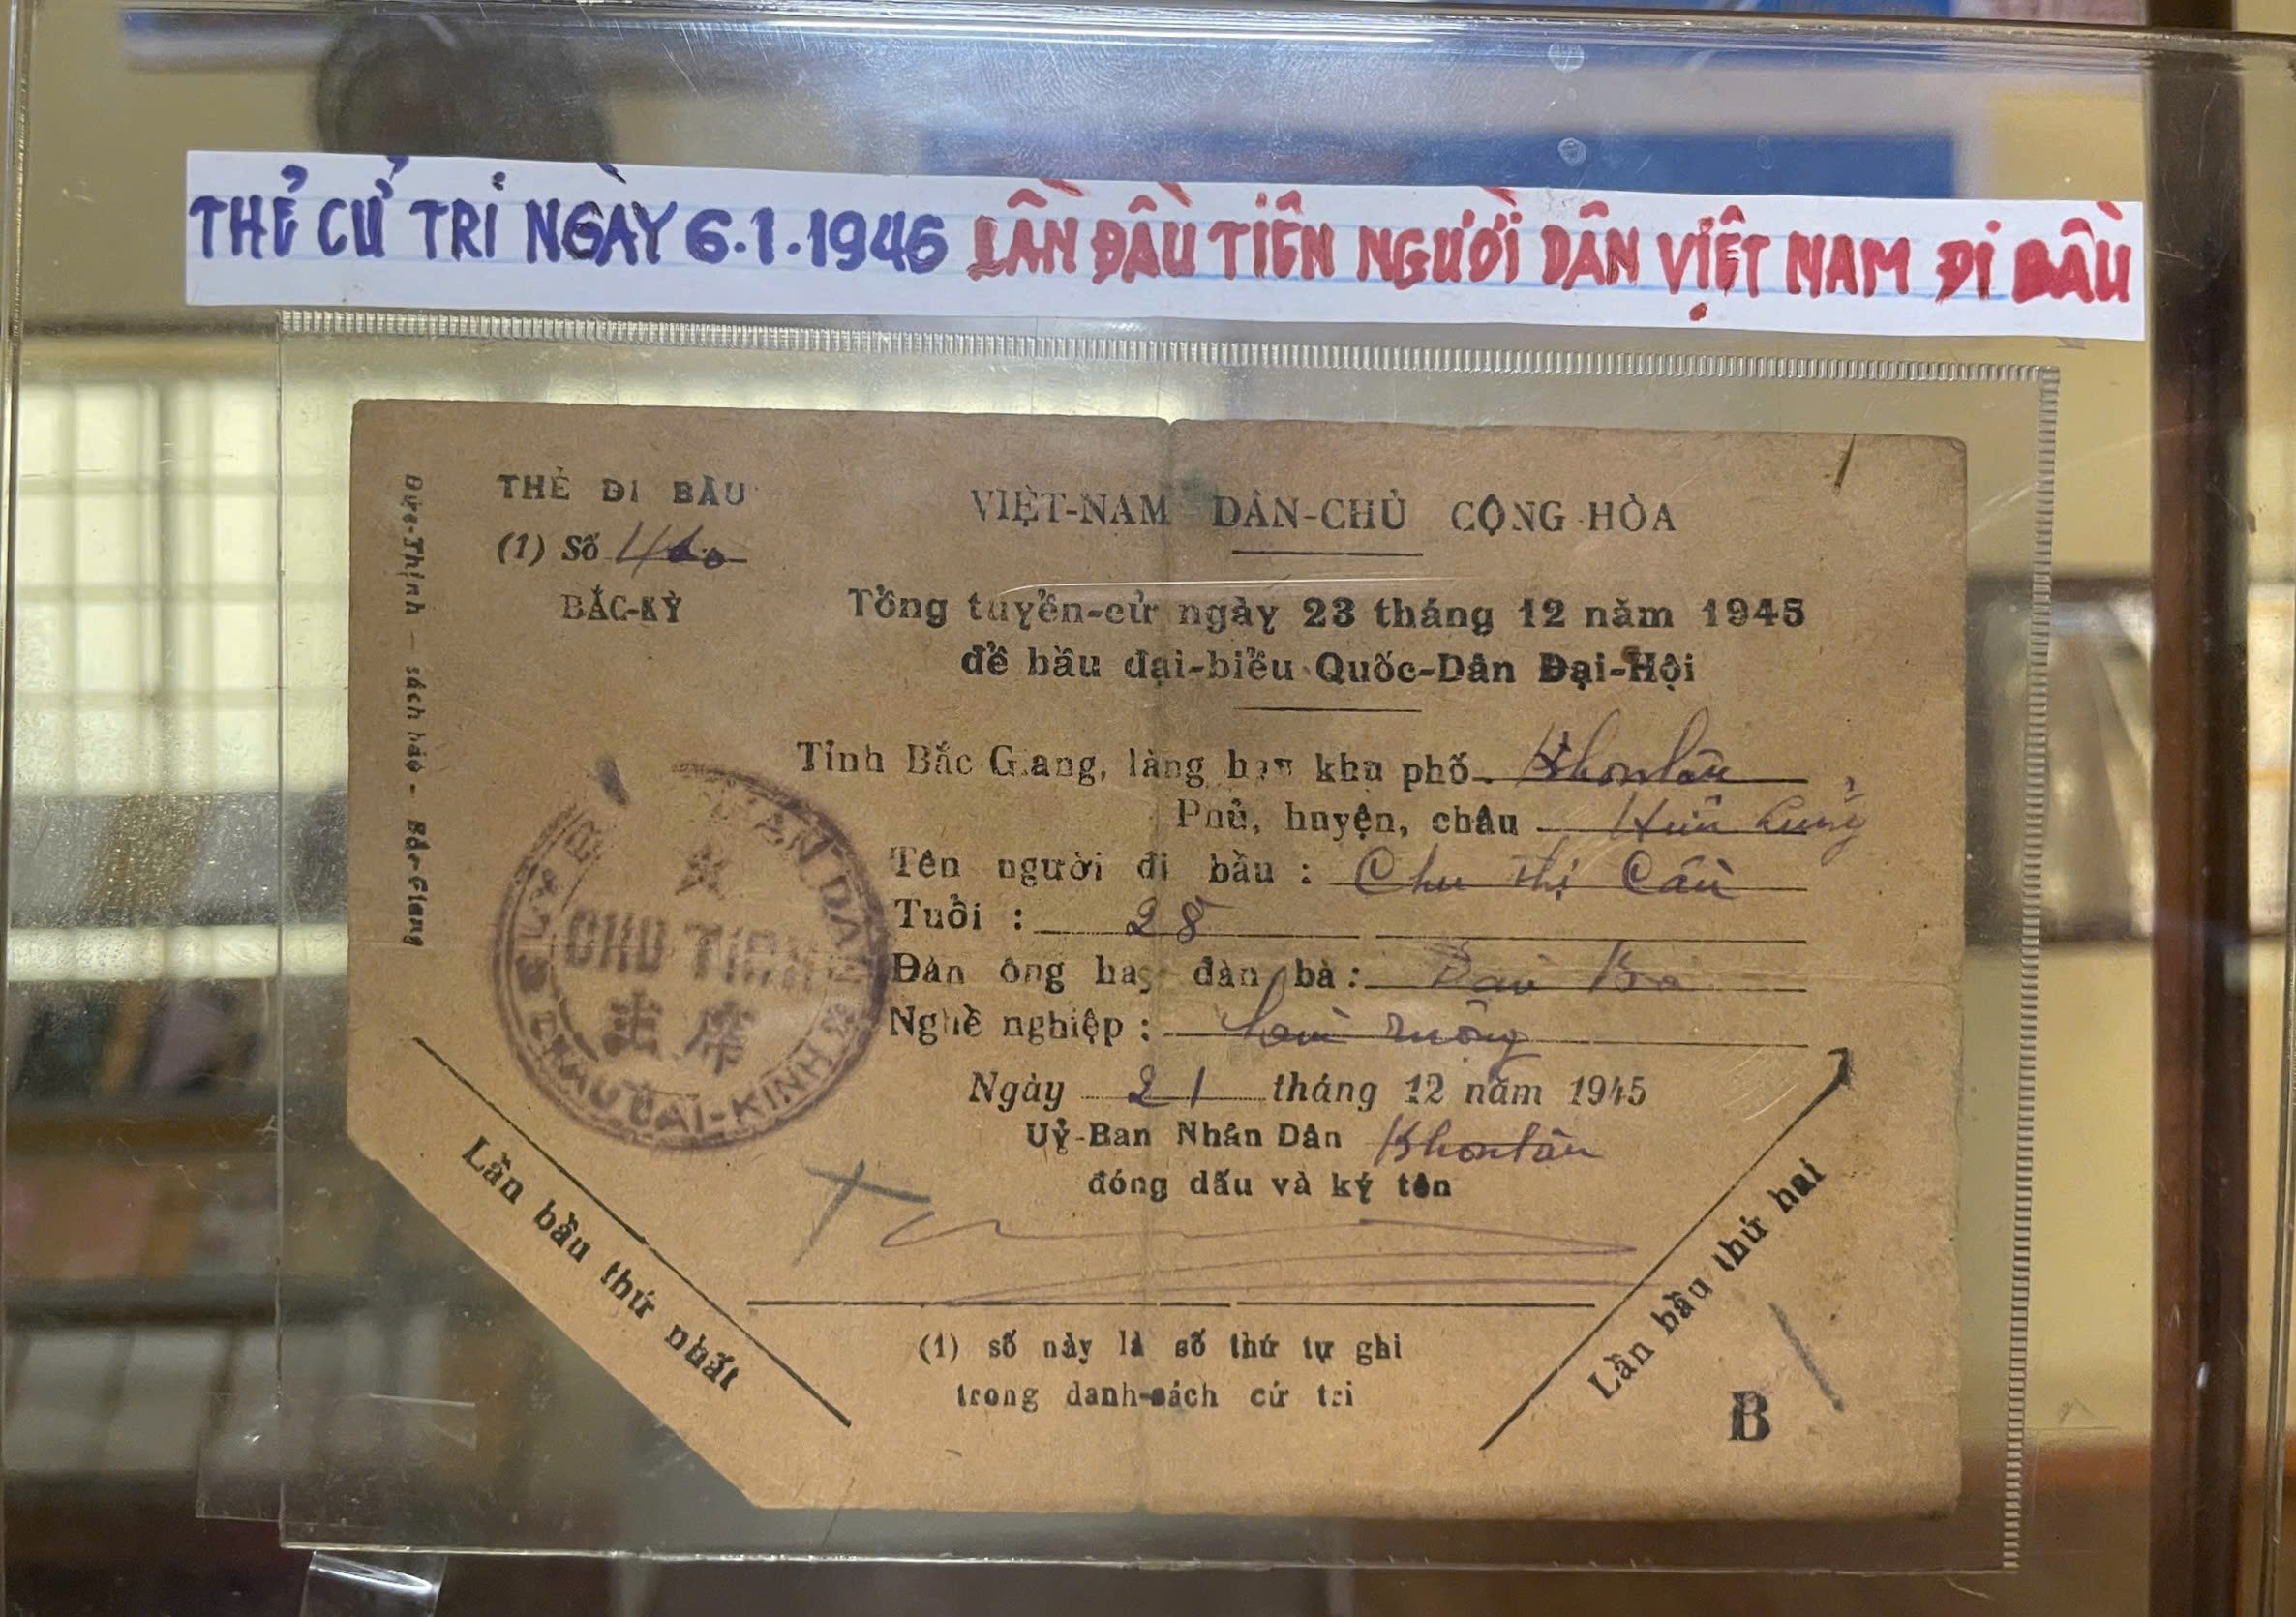 THẺ CỬ TRI NGÀY 6.1.1946 LẦN ĐẦU TIÊN NGƯỜI DÂN VIỆT NAM ĐI BẦU
THẺ ĐI BẦU
(1) Số
BẮC-KỲ
VIỆT-NAM DÂN-CHỦ CỘNG HÒA
Tổng tuyển-cử ngày 23 tháng 12 năm 1945
để bầu đại-biểu Quốc-Dân Đại-Hội
Tỉnh Bắc Giang, làng bản khu phố
Phủ, huyện, châu Hữu Lũng
Tên người đi bầu : Chu Thị Cầu
Tuổi : 28
Đàn ông hay đàn bà : Đàn Bà
Nghề nghiệp : Làm ruộng
Ngày 21 tháng 12 năm 1945
Uỷ-Ban Nhân Dân
đóng dấu và ký tên
(1) số này là số thứ tự ghi
trong danh-sách cử tri
Lần bầu thứ nhất
Lần bầu thứ hai
B
Đức-Thịnh — sách báo - Bắc-Giang
CHỦ TỊCH
主席